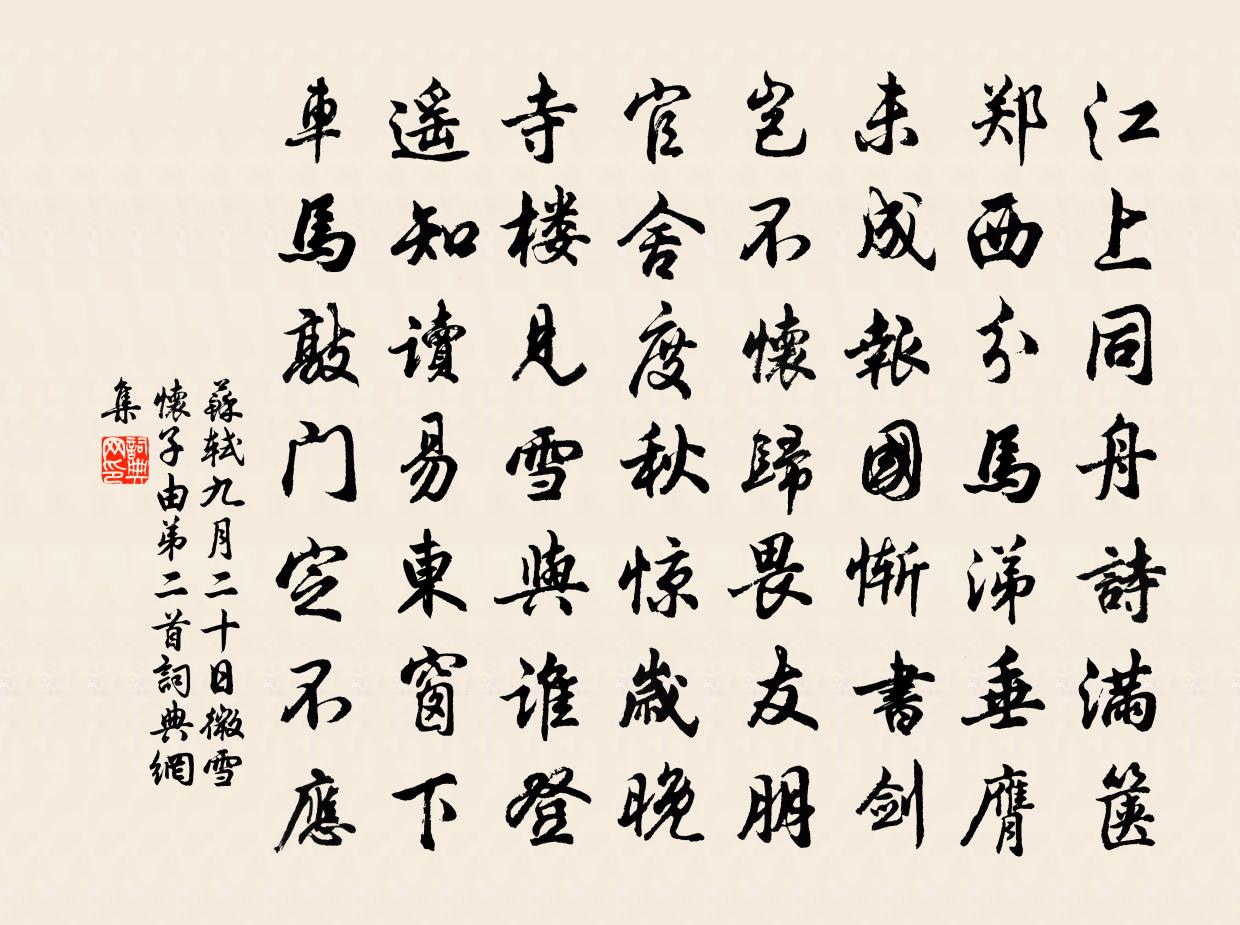 江上同舟詩满箧
郑西分馬涕垂膺
未成報國惭書剑
岂不懷歸畏友朋
官舍度秋惊歲晚
寺楼見雪與谁登
遥知读易東窗下
車馬敲门定不應
蘇轼九月二十日微雪
懷子由弟二首詞典網
集
詞典网印